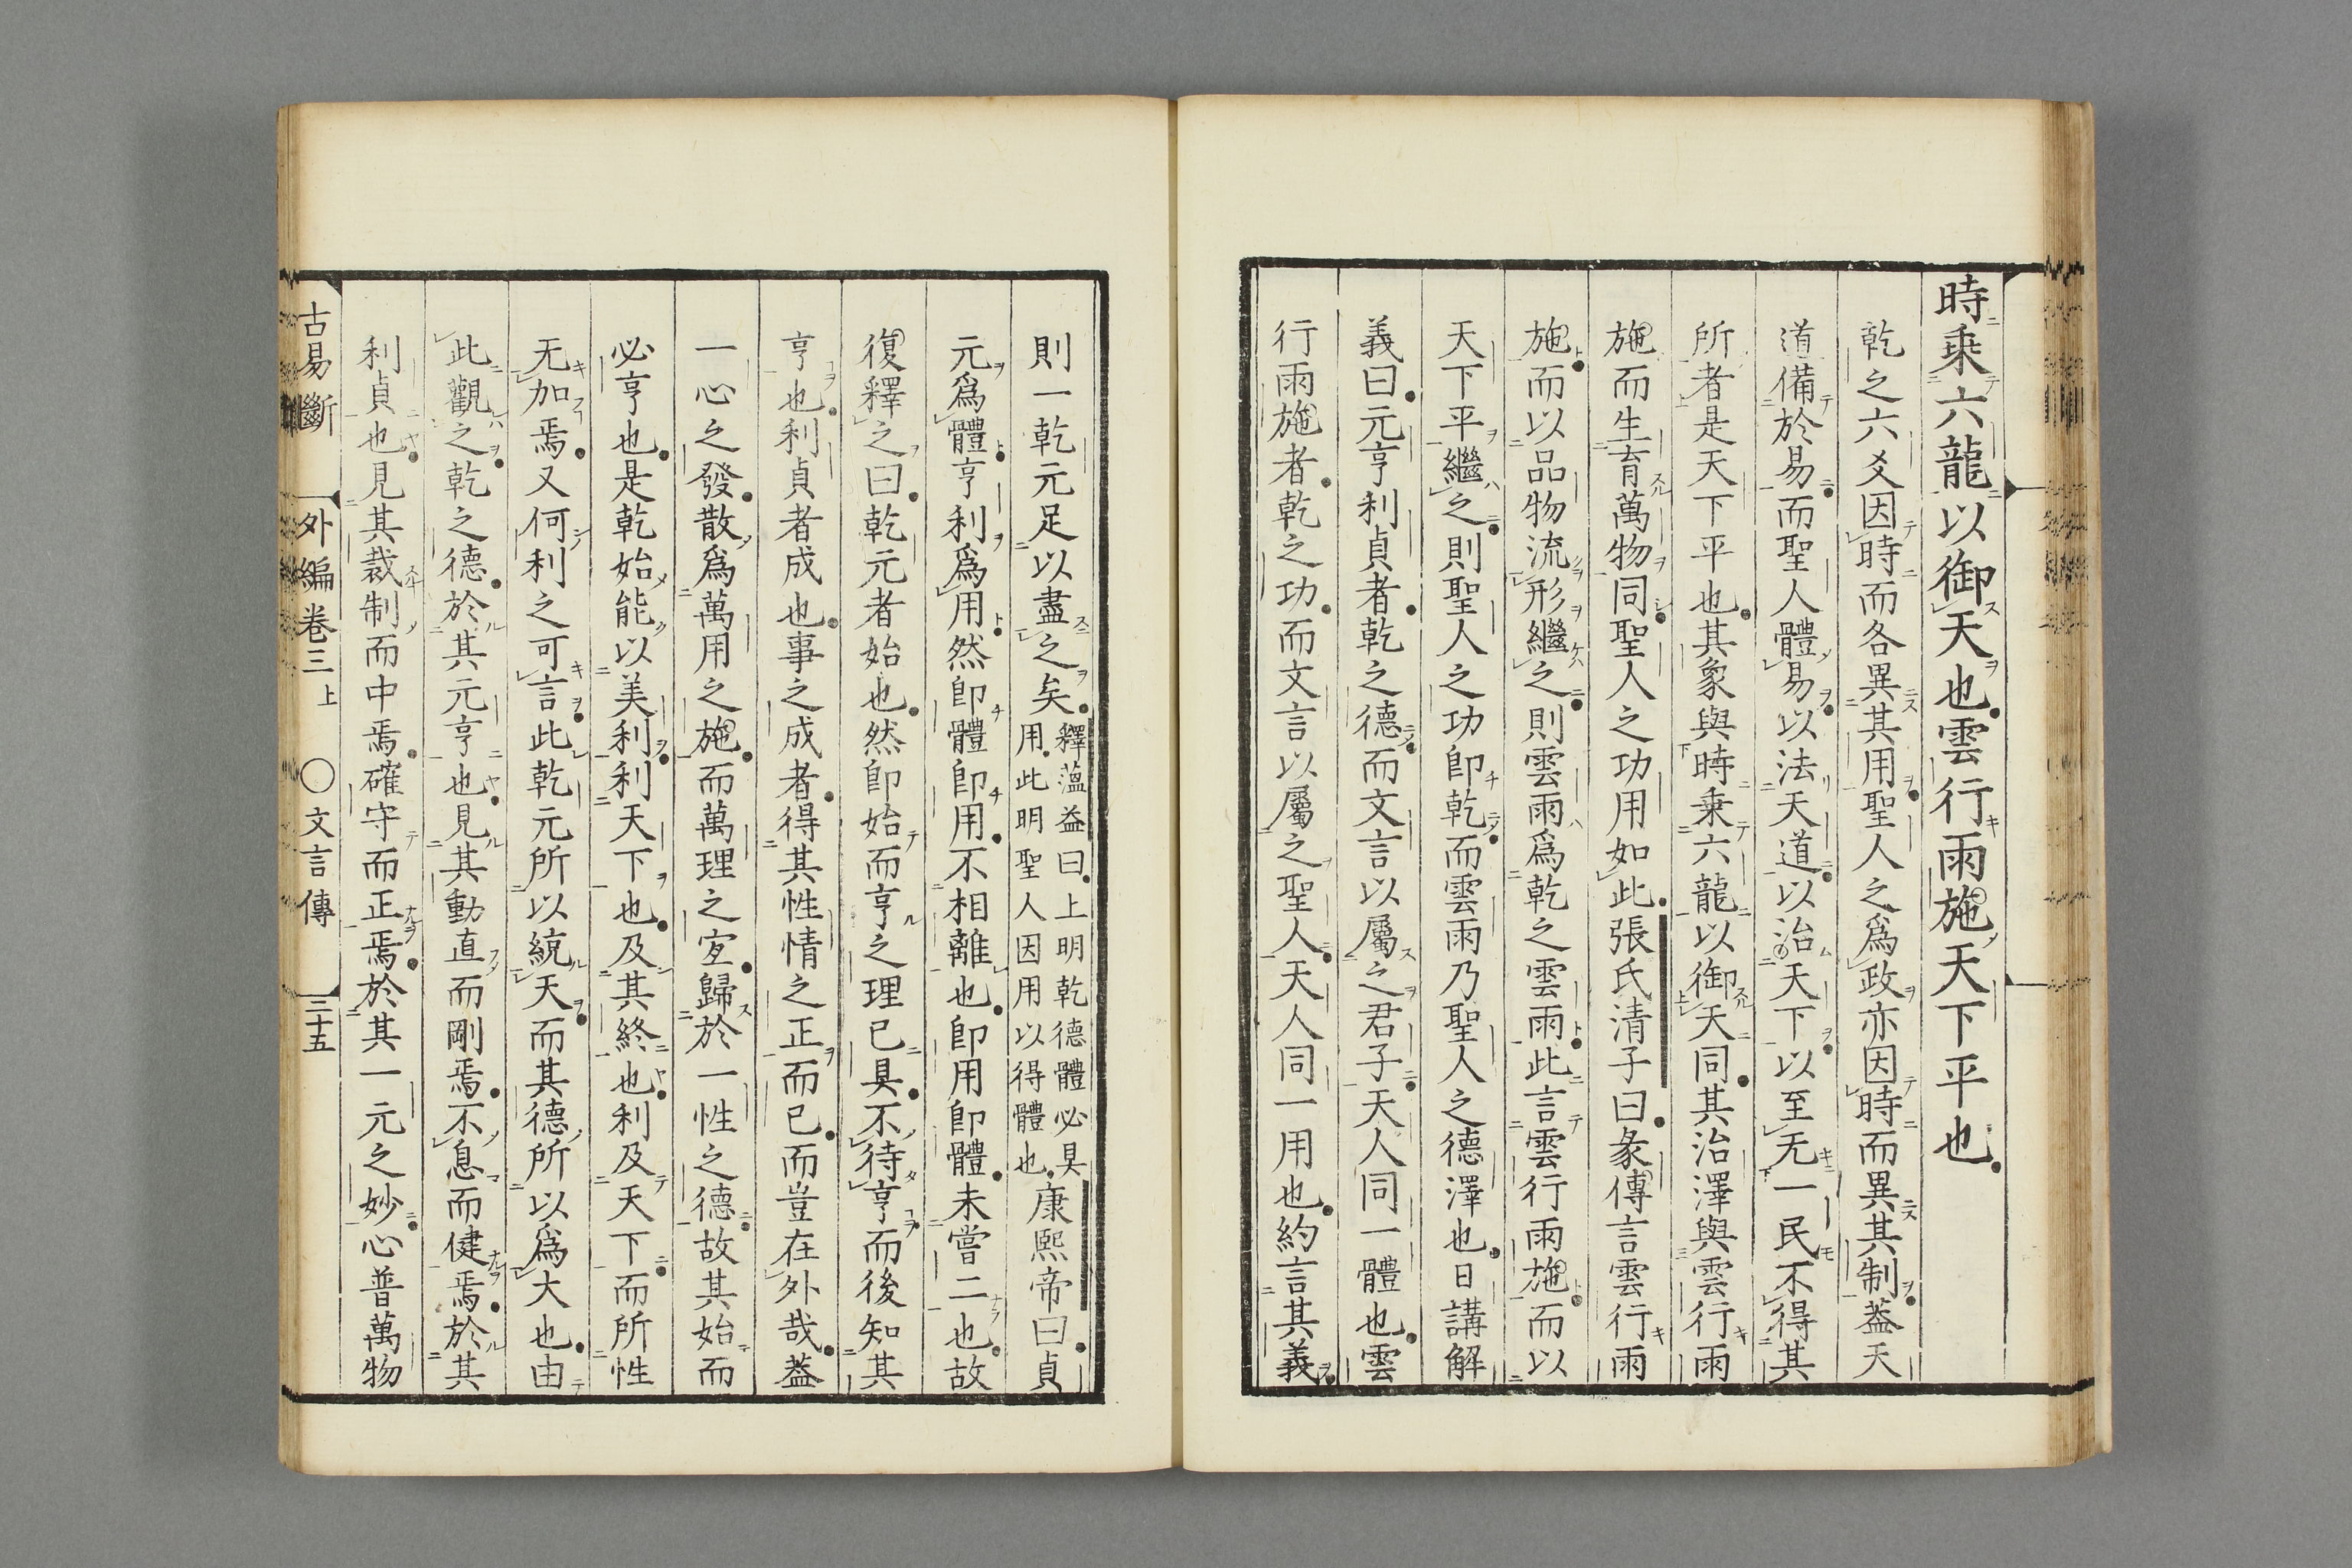 時乘六龍以御天也雲行雨施天下平也
乾之六爻因時而各異其用聖人之爲政亦因時而異其制葢天
道備於易而聖人體易以法天道以治天下以至无一民不得其
所者是天下平也其象與時乘六龍以御天同其治澤與雲行雨
施而生育萬物同聖人之功用如此張氏清子曰彖傳言雲行雨
施而以品物流形繼之則雲雨爲乾之雲雨此言雲行雨施而以
天下平繼之則聖人之功卽乾而雲雨乃聖人之德澤也日講解
義曰元亨利貞者乾之德而文言以屬之君子天人同一體也雲
行雨施者乾之功而文言以屬之聖人天人同一用也約言其義
則一乾元足以盡之矣釋薀益曰上明乾德體必具
用此明聖人因用以得體也康熙帝曰貞
元爲體亨利爲用然卽體卽用不相離也卽用卽體未嘗二也故
復釋之曰乾元者始也然卽始而亨之理已具不待亨而後知其
亨也利貞者成也事之成者得其性情之正而已而豈在外哉葢
一心之發散爲萬用之施而萬理之宜歸於一性之德故其始而
必亨也是乾始能以美利利天下也及其終也利及天下而所性
无加焉又何利之可言此乾元所以統天而其德所以爲大也由
此觀之乾之德於其元亨也見其動直而剛焉不息而健焉於其
利貞也見其裁制而中焉確守而正焉於其一元之妙心普萬物
古易斷　外編卷三上　〇文言傳　三十五